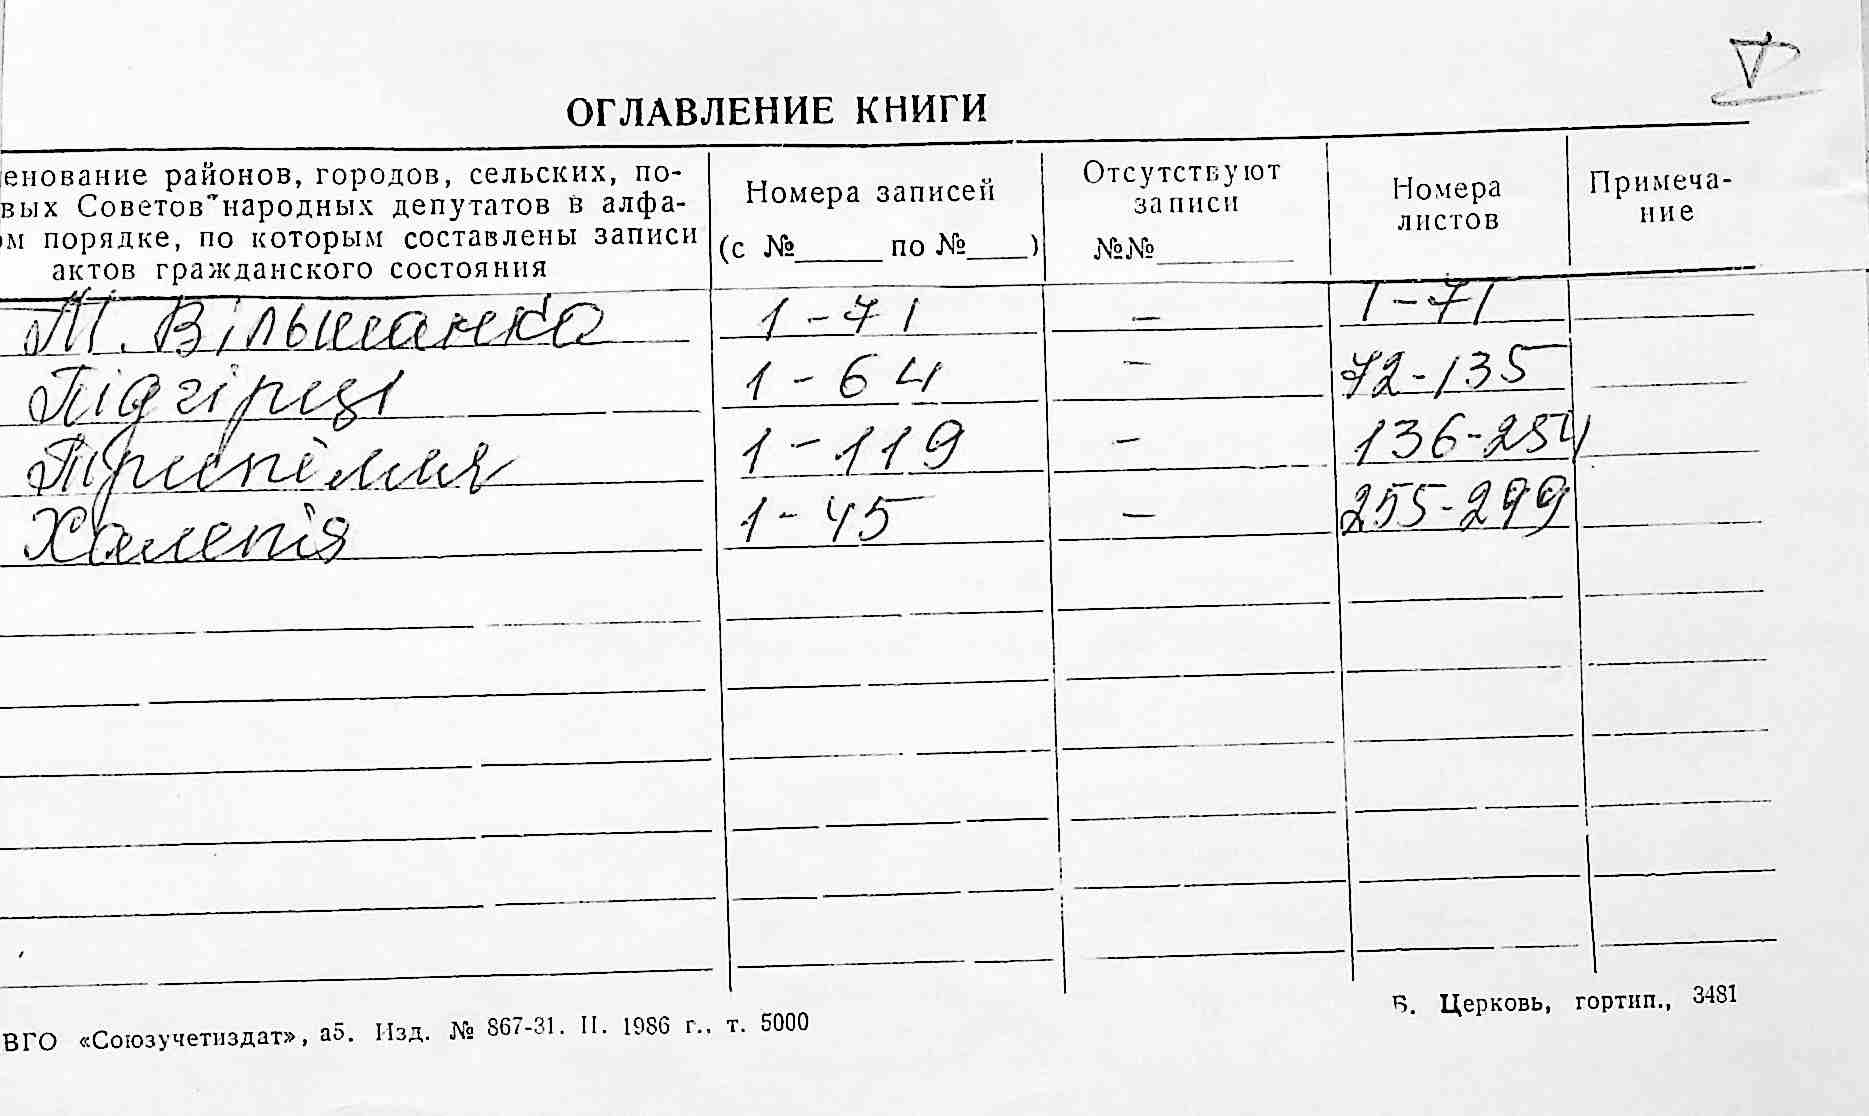 ОГЛАВЛЕНИЕ КНИГИ
енование районов, городов, сельских, по-
вых Советов народных депутатов в алфа-
м порядке, по которым составлены записи
актов гражданского состояния
Номера записей
(с №______ по №____)
Отсутствуют
записи
№№_________
Номера
листов
Примеча-
ние
М. Вільшанка 1-71 - 1-71
Підгірці 1-64 - 72-135
Трипілля 1-119 - 136-254
Халепія 1-45 - 255-299
ВГО «Союзучетиздат», а5. Изд. № 867-31. II. 1986 г.. т. 5000
Б. Церковь, гортип., 3481